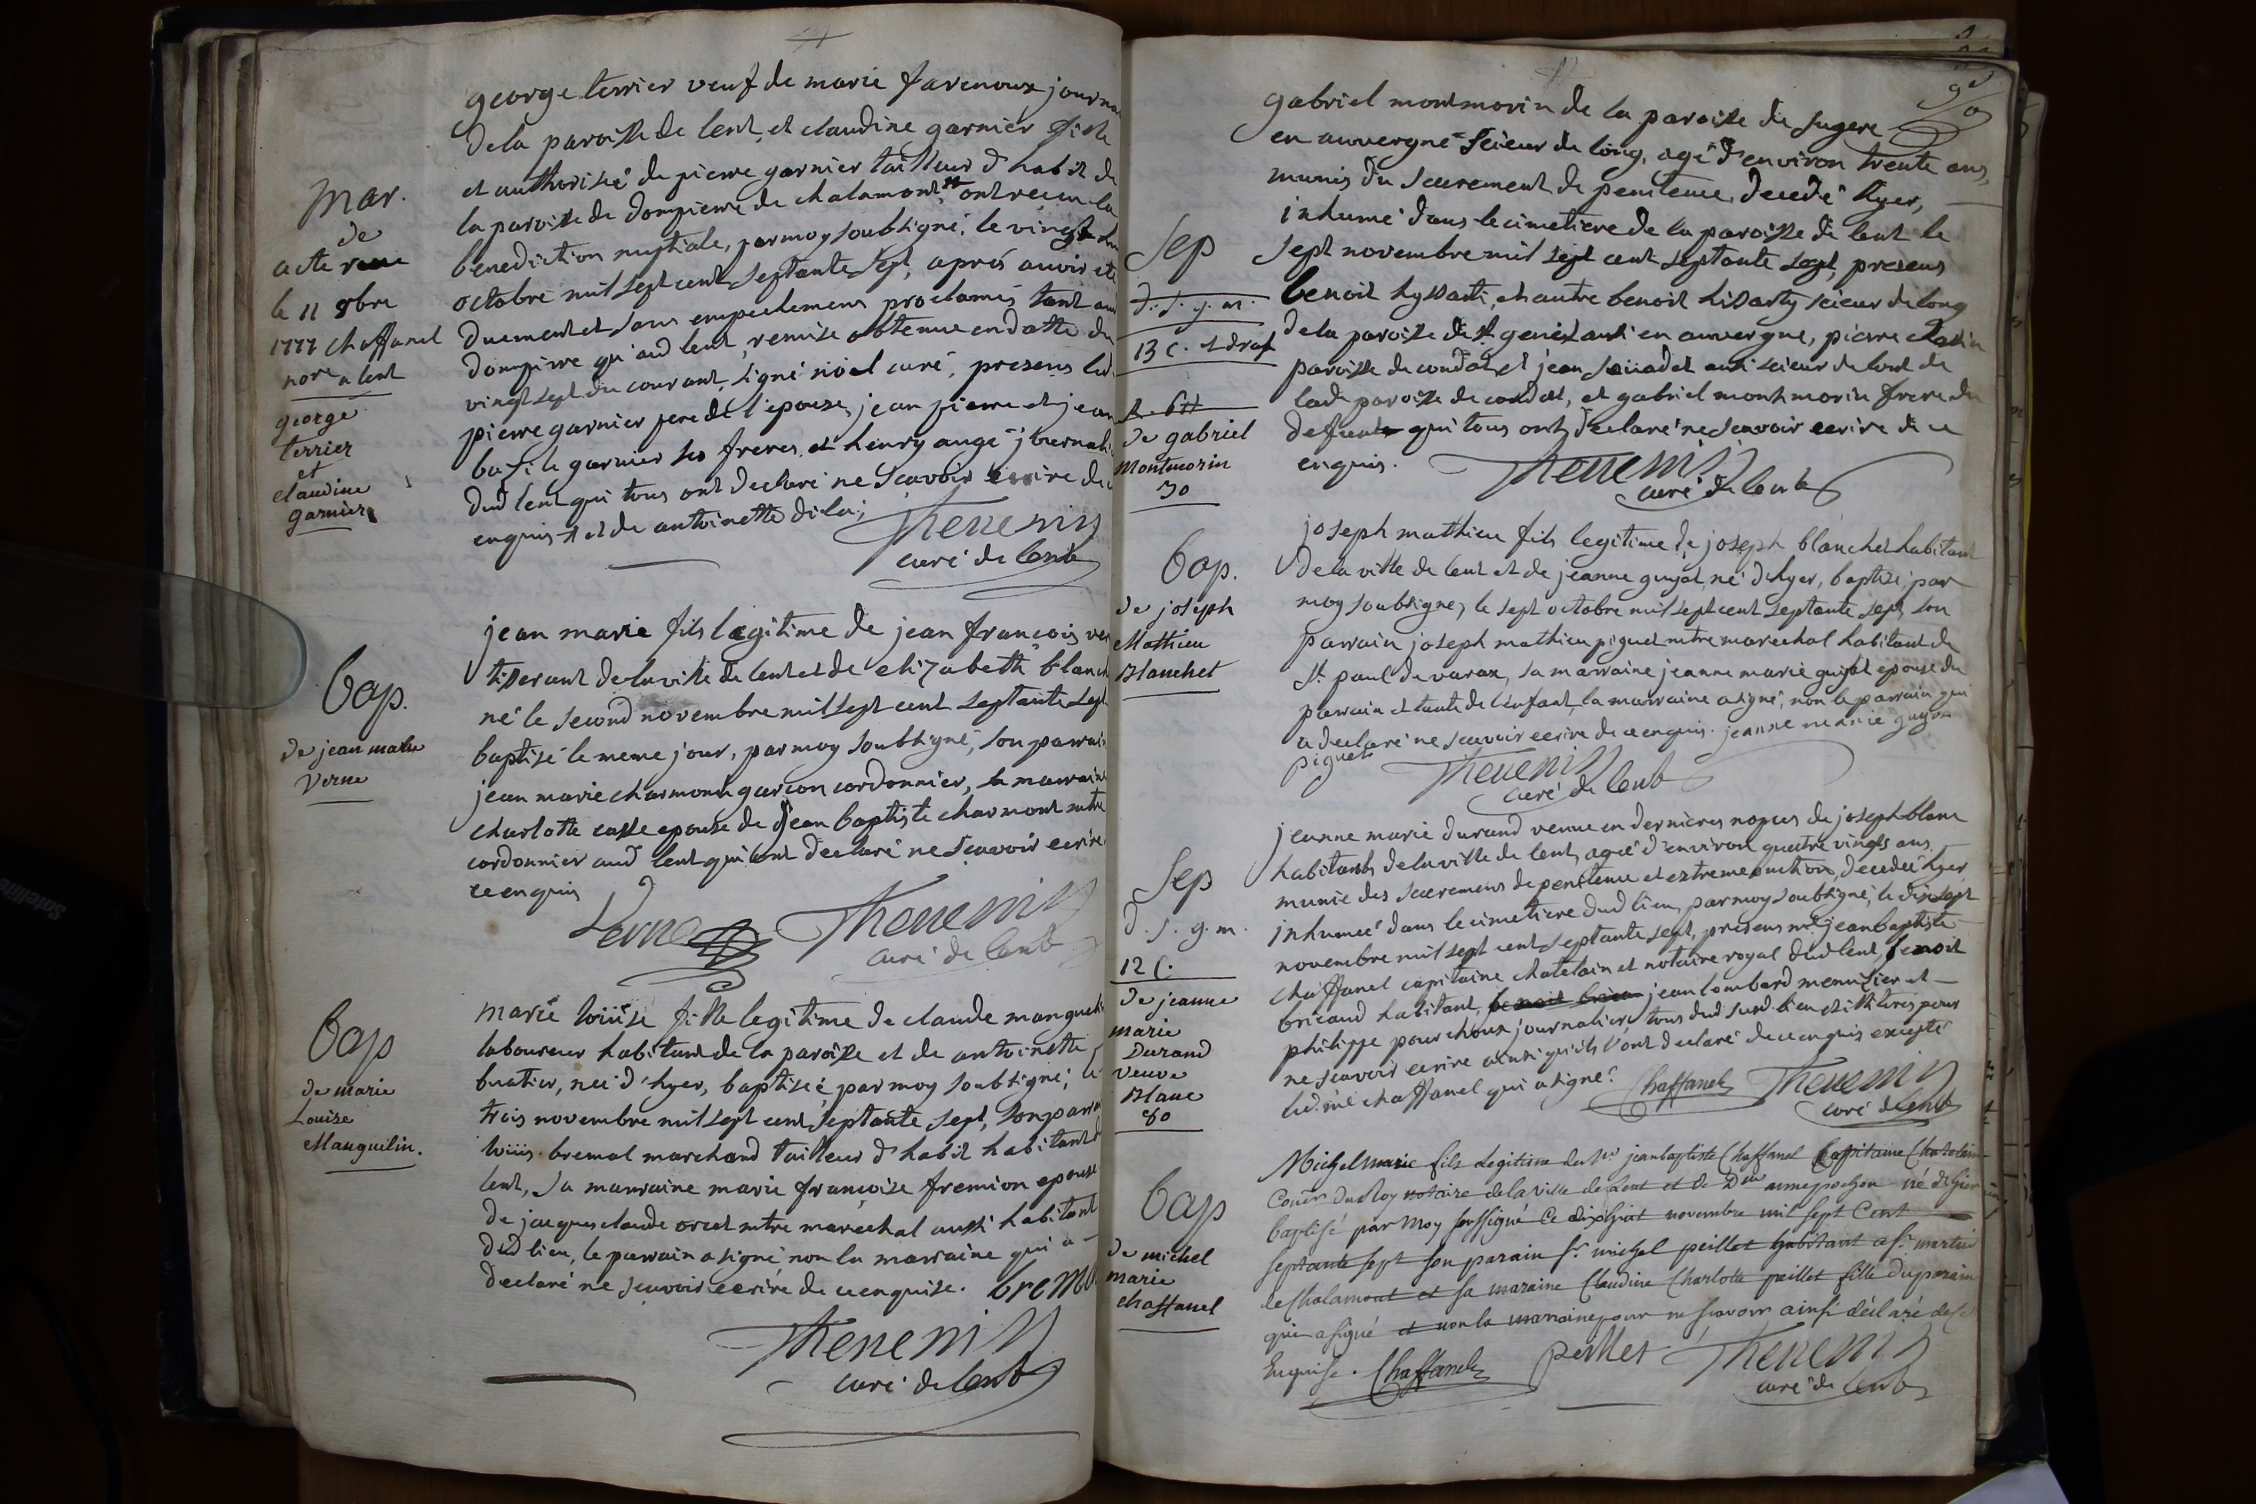 george terrier veuf de marie farenoux journa
de la paroisse de lent, et claudine garnier fille
et authorisée de pierre garnier tailleur d'habit de
la paroisse de dompierre de chalamont, ont recu la
benediction nuptiale, par moy soubsigné, le vingt
octobre mil sept cent septante sept, aprés avoir eté
duement et sans empechemens proclamés tant au
dompierre qu'aud lent, remise obtenue en datte du
vingt sept du courant, signé noël curé, presens led
pierre garnier pere de l'epouse, jean pierre et jean
bazile garnier ses freres, et henry augé journali
dud lent qui tous ont declaré ne scavoir ecrire de
enquis et de antoinette dila;
Thevenin
curé de lent
Mar.
de
acte
le 11 8bre
1777 chaffanel
nore a lent
george
terrier
et
claudine
garnier
jean marie fils legitime de jean francois ver
tisserant de la ville de lent et de elizabeth blanc
né le second novembre mil sept cent septante sept
baptisé le meme jour, par moy soubsigné, son parrain
jean marie charmont garcon cordonnier, sa marraine
charlotte casse epouse de jean baptiste charmont mtre
cordonnier aud lent qui ont declaré ne scavoir ecrire
ce enquis
Verne Thevenin
curé de lent
bap.
de jean marie
Verne
marie louise fille legitime de claude manguel
laboureur habitant de la paroisse et de antoinette
buatier, neé d'hyer, baptiseé par moy soubsigné, le
trois novembre mil sept cent septante sept, son parrain
louis bremal marchand tailleur d'habit habitant
lent, sa marraine marie francoise fremion epouse
de jacques claude orcet mtre maréchal aussi habitant
dud lieu, le parrain a signé non la marraine qui a
declaré ne scavoir ecrire de ce enquise. brema
Thevenin
curé de lent
bap
de marie
Louise
Manguilin.
gabriel montmorin de la paroisse de sugere
en auvergne scieur de long, agé d'environ trente ans,
munis du sacrement de penitence, decedé hyer,
inhumé dans le cimetiere de la paroisse de lent le
sept novembre mil sept cent septante sept, presens
benoit hyssarti, et autre benoit hissarty scieur de long
de la paroisse de st genest aussi en auvergne, pierre
paroisse de condat et jean aussi scieur de lont de
lade paroisse de condat, et gabriel montmorin frere du
defunt qui tous ont declaré ne scavoir ecrire de ce
enquis. Thevenin
curé de lent
Sep
d. s. g. m.
13 C.
de gabriel
Montmorin
30
joseph mathieu fils legitime de joseph blanchet habitant
de la ville de lent et de jeanne guyot, né d'hyer, baptisé par
moy soubsigné, le sept octobre mil sept cent septante sept, son
parrain joseph mathieu piguet mtre marechal habitant de
st paul de varax, sa marraine jeanne marie guyot epouse du
parrain et tante de l'enfant, la marraine a signé, non le parrain qui
a declaré ne scavoir ecrire de ce enquis. jeanne marie guyon
piguet Thevenin
curé de lent
bap.
de joseph
Mathieu
Blanchet
jeanne marie durand veuve en dernieres nopces de joseph blanc
habitants de la ville de lent, ageé d'environ quatre vingts ans,
munie des sacremens de penitence et extreme onction, decedeé hyer
inhumeé dans le cimetiere dud lieu, par moy soubsigné, le dix sept
novembre mil sept cent septante sept, presens me jean baptiste
chaffanel capitaine chatelain et notaire royal dud lent, benoit
bricaud habitant, jean lombard menusier et
philippe pourchoux journalier, tous dud lieu et illiterés pour
ne scavoir ecrire ainsi qu'ils l'ont declaré de ce enquis excepté
led. me chaffanel qui a signé. Chaffanel Thevenin
curé de lent
Sep
d. s. g. m.
12 C.
de jeanne
marie
Durand
veuve
Blanc
80
Michel marie fils legitime du sr jean baptiste Chaffanel Capitaine Chatelain
Coner du Roy notaire de la ville de Lent et de Dlle anne pochon né d'hier
baptisé par Moy soussigné Ce dixhuit novembre mil sept Cent
septante sept son parain sr michel peillet habitant a st martin
le Chalamont et sa maraine Claudine Charlotte peillet fille du parain
qui a signé et non la maraine pour ne scavoir ainsi déclaré de ce
Enquise. Chaffanel peillet Thevenin
curé de lent
bap
de michel
marie
chaffanel